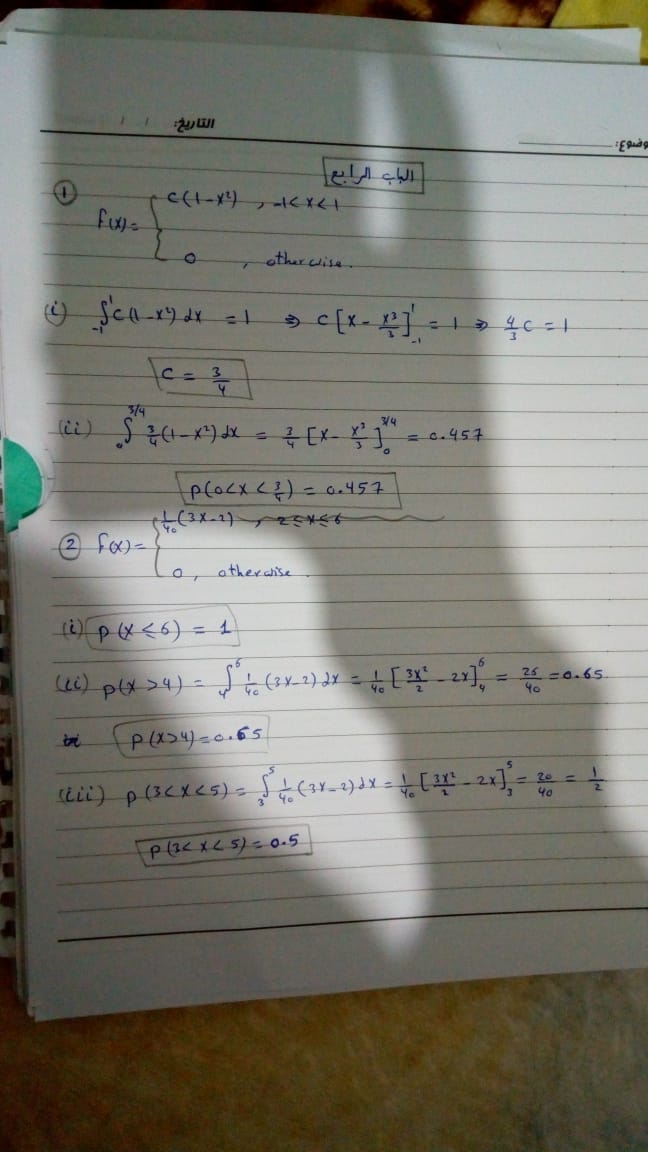 التاريخ: / /
الموضوع:
الباب الرابع
① f(x) = { c(1-x²) , -1<x<1
0 , otherwise.
(i) ∫₋₁¹ c(1-x²) dx = 1 ⇒ c[x - x³/3]₋₁¹ = 1 ⇒ 4/3 c = 1
c = 3/4
(ii) ∫₀^{3/4} 3/4 (1-x²) dx = 3/4 [x - x³/3]₀^{3/4} = 0.457
P(0<x<3/4) = 0.457
② f(x) = { 1/40 (3x-2) , 2≤x≤6
0 , otherwise.
(i) P(x≤6) = 1
(ii) P(x>4) = ∫₄⁶ 1/40 (3x-2) dx = 1/40 [3x²/2 - 2x]₄⁶ = 26/40 = 0.65
P(x>4) = 0.65
(iii) P(3<x<5) = ∫₃⁵ 1/40 (3x-2) dx = 1/40 [3x²/2 - 2x]₃⁵ = 20/40 = 1/2
P(3<x<5) = 0.5